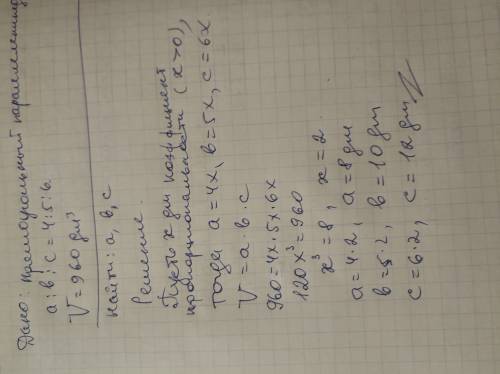 Дано: прямоугольный параллелепипед
a : b : c = 4 : 5 : 6.
V = 960 дм³
Найти: a, b, c
Решение.
Пусть x дм коэффициент
пропорциональности (x > 0),
тогда a = 4x, b = 5x, c = 6x
V = a · b · c
960 = 4x · 5x · 6x
120x³ = 960
x³ = 8, x = 2.
a = 4 · 2, a = 8 дм
b = 5 · 2, b = 10 дм
c = 6 · 2, c = 12 дм